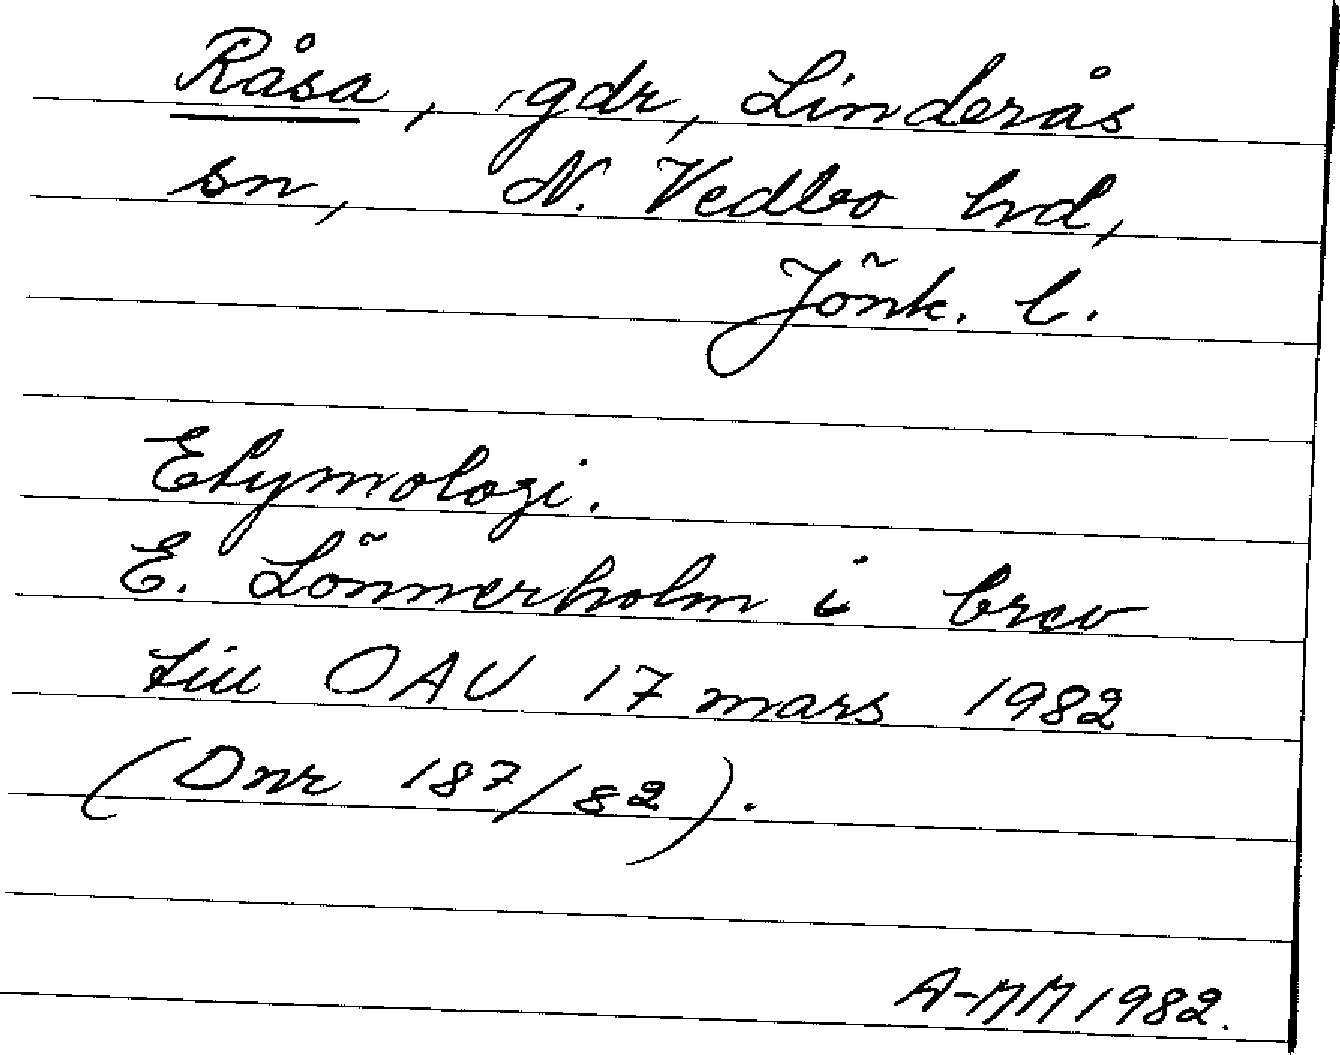 Råsa, gdr, Linderås
sn, N. Vedbo hd,
Jönk. l.
Etymologi.
E. Lönnerholm i brev
till OAU 17 mars 1982
(Dnr 187/82).
A-MM 1982.